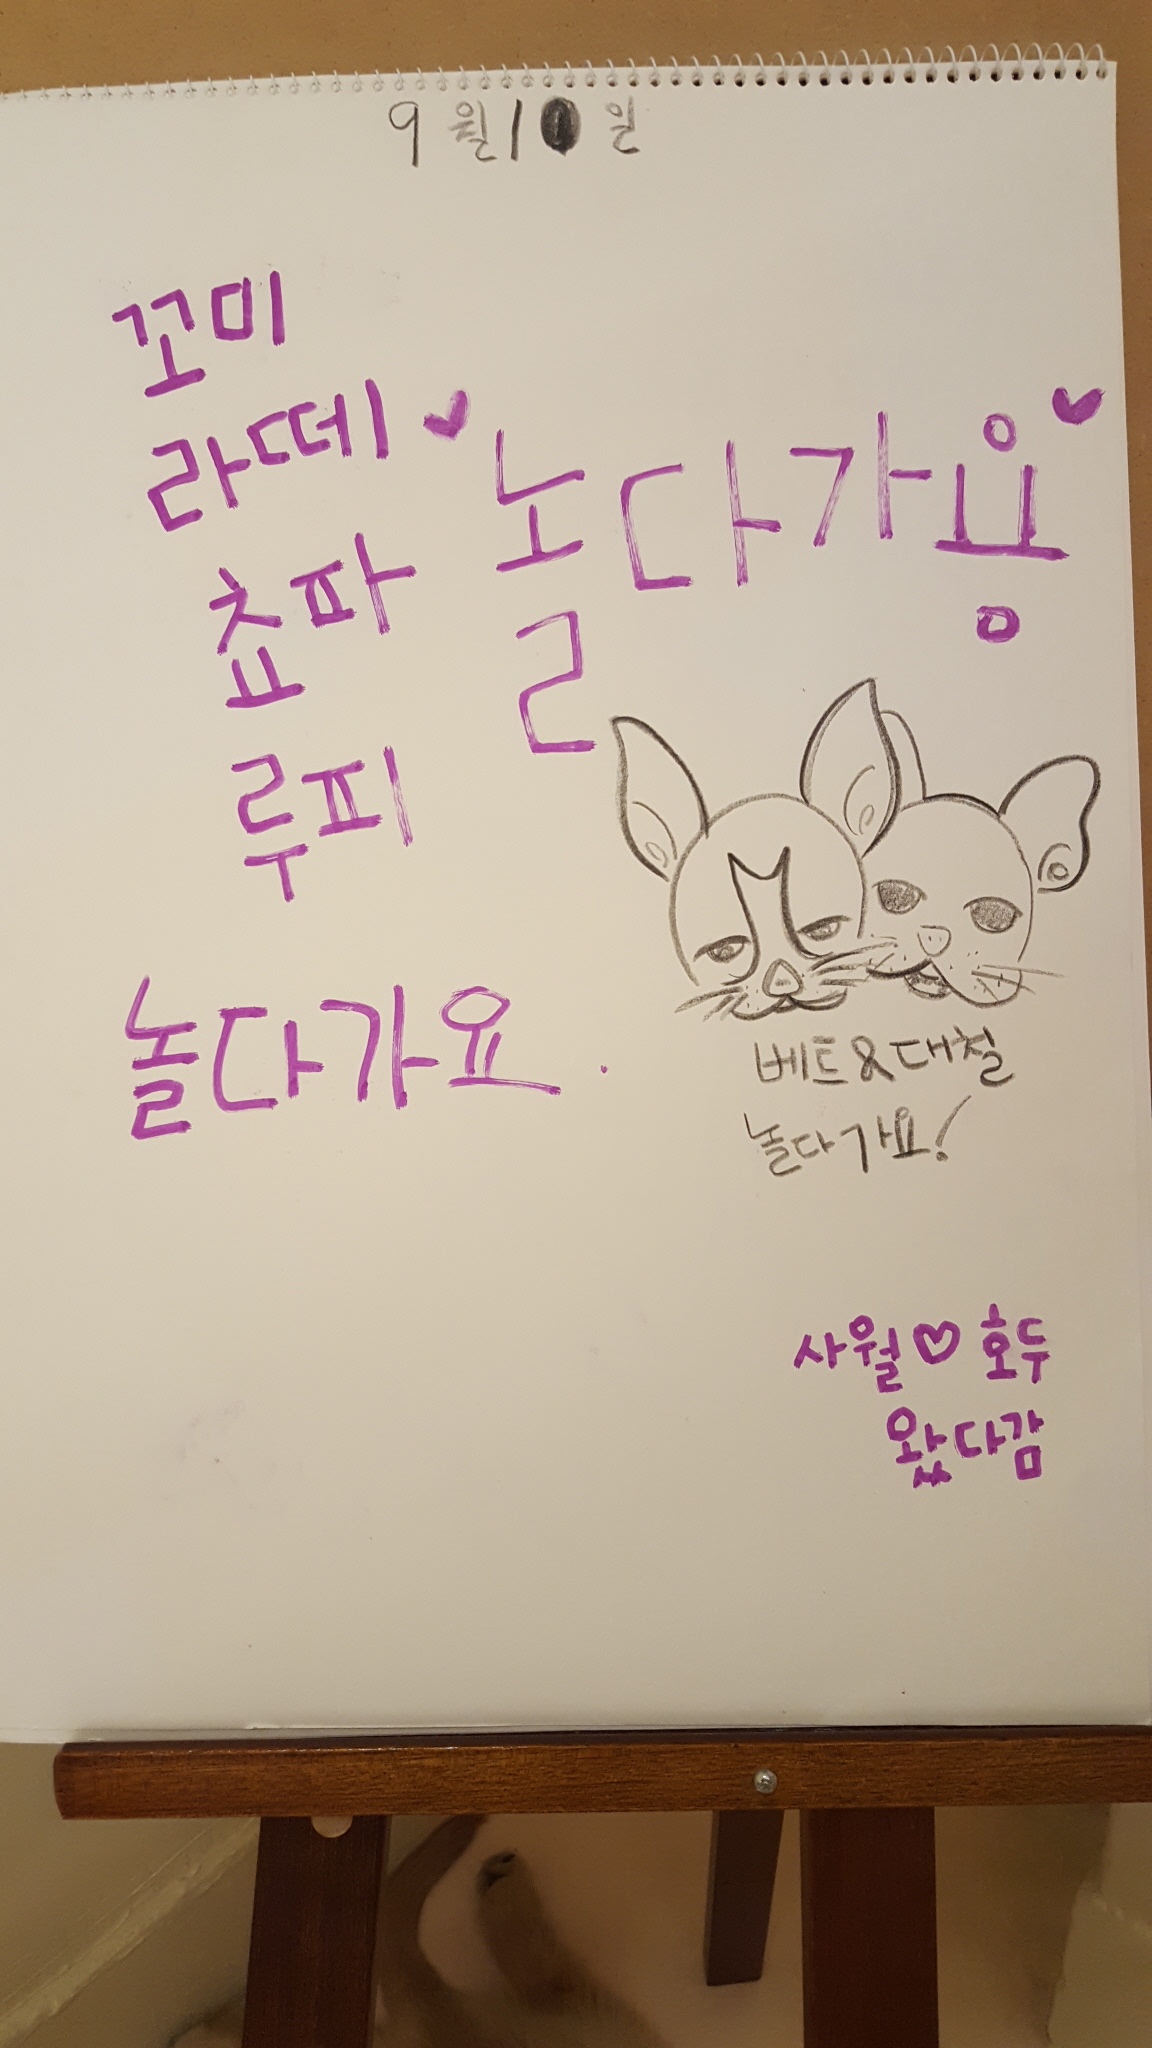 9월 10일
꼬미
라떼
쵸파
루피
♥ 놀다가용 ♥
놀다가요.
베트&대철
놀다가요!
사월♡호두
왔다감